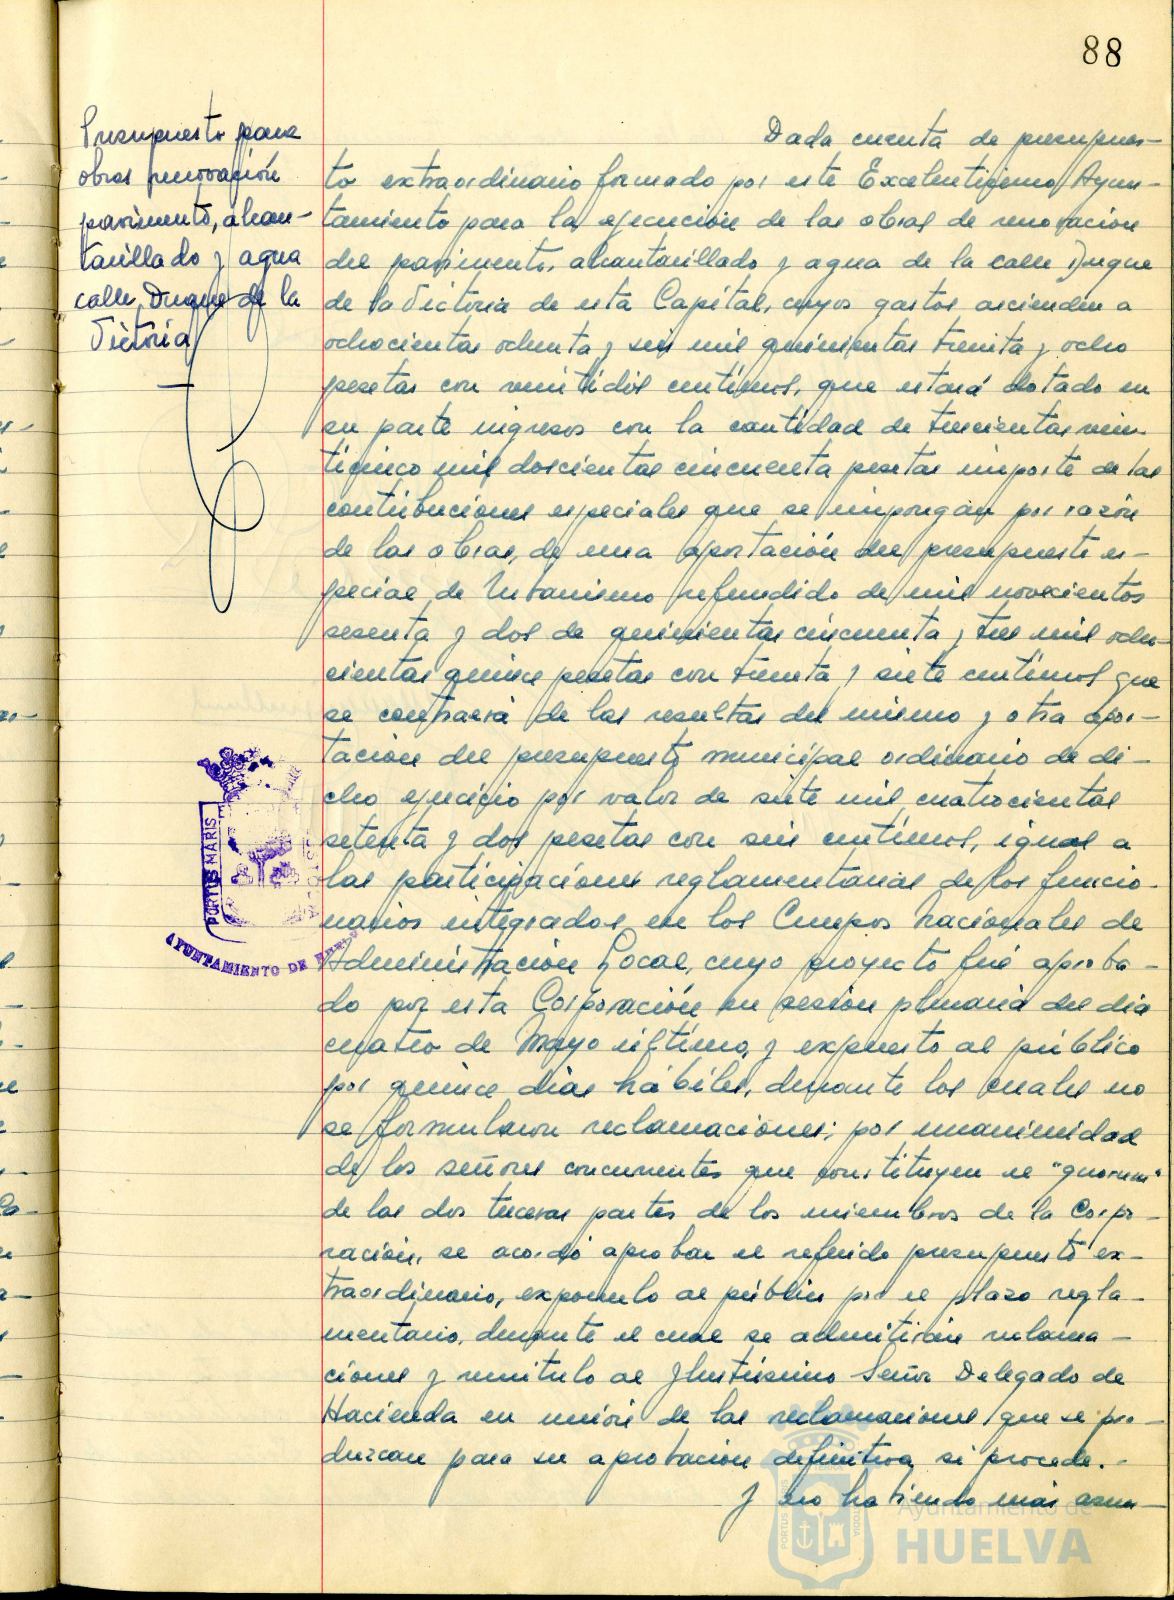 88
Presupuesto para
obras renovación
pavimento, alcan-
tarillado y agua
calle Duque de la
Victoria
Dada cuenta de presupues-
to extraordinario formado por este Excelentísimo Ayun-
tamiento para la ejecución de las obras de renovación
del pavimento, alcantarillado y agua de la calle Duque
de la Victoria de esta Capital, cuyos gastos ascienden a
ochocientas ochenta y seis mil quinientas treinta y ocho
pesetas con veintidós céntimos, que estará dotado en
su parte ingresos con la cantidad de trescientas vein-
ticinco mil doscientas cincuenta pesetas importe de las
contribuciones especiales que se impongan por razón
de las obras, de una aportación del presupuesto es-
pecial de Urbanismo refundido de mil novecientos
sesenta y dos de quinientas cincuenta y tres mil ocho-
cientas quince pesetas con treinta y siete céntimos que
se contraerá de las resultas del mismo y otra apor-
tación del presupuesto municipal ordinario de di-
cho ejercicio por valor de siete mil cuatrocientas
setenta y dos pesetas con seis céntimos, igual a
las participaciones reglamentarias de los funcio-
narios integrados en los Cuerpos Nacionales de
Administración Local, cuyo proyecto fué aproba-
do por esta Corporación en sesión plenaria del día
cuatro de Mayo último, y expuesto al público
por quince días hábiles, durante los cuales no
se formularon reclamaciones; por unanimidad
de los señores concurrentes que constituyen el "quorum"
de las dos terceras partes de los miembros de la Corpo-
ración, se acordó aprobar el referido presupuesto ex-
traordinario, exponerlo al público por el plazo regla-
mentario, durante el cual se admitirán reclama-
ciones y remitirlo al Ilustrísimo Señor Delegado de
Hacienda en unión de las reclamaciones que se pro-
duzcan para su aprobación definitiva, si procede.-
Y no habiendo más asun-
PORTUS MARIS
AYUNTAMIENTO DE HUELVA
Ayuntamiento de
HUELVA